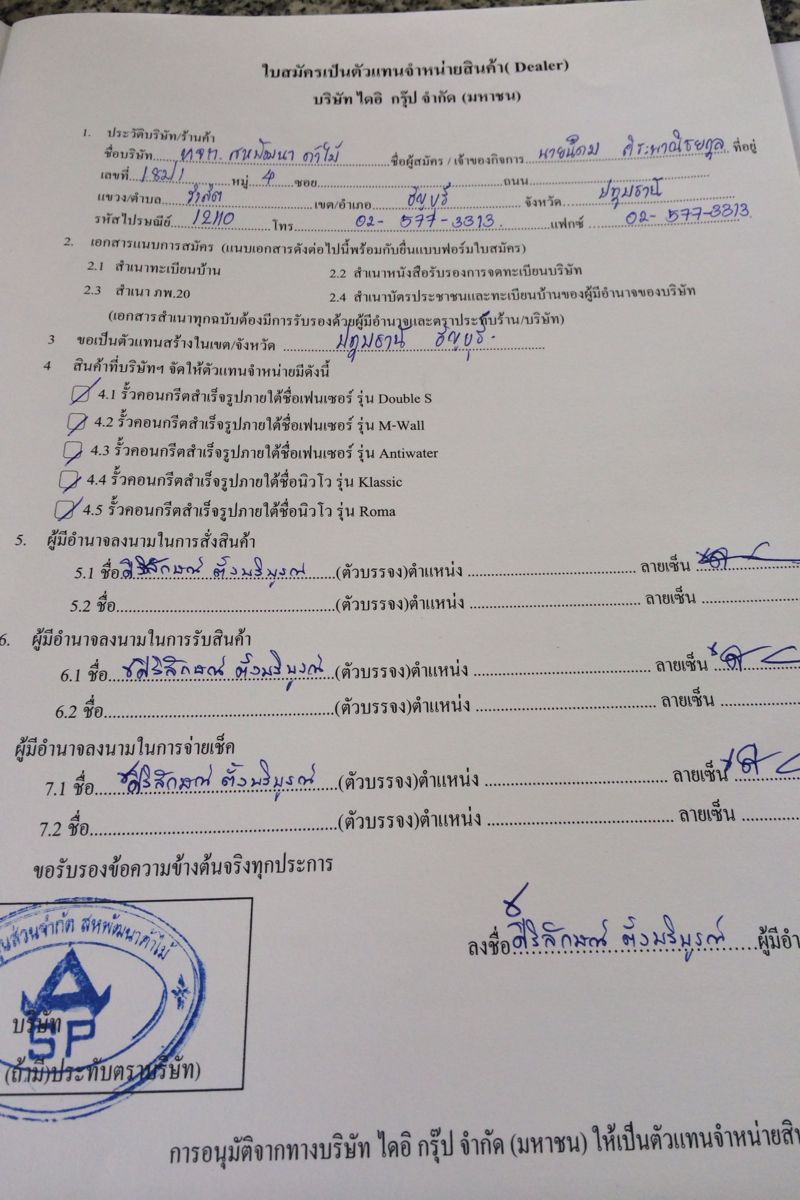 ใบสมัครเป็นตัวแทนจำหน่ายสินค้า( Dealer)
บริษัท ไดอิ กรุ๊ป จำกัด (มหาชน)
1. ประวัติบริษัท/ร้านค้า
ชื่อบริษัท....หจก. สหพัฒนา ค้าไม้....ชื่อผู้สมัคร / เจ้าของกิจการ....นายนิคม....ที่อยู่
เลขที่....หมู่..4..ซอย....ถนน....
แขวง/ตำบล....เขต/อำเภอ....ธัญบุรี....จังหวัด....ปทุมธานี
รหัสไปรษณีย์....12110....โทร....02- 577-3313....แฟกซ์....02- 577-3313
2. เอกสารแนบการสมัคร (แนบเอกสารดังต่อไปนี้พร้อมกับยื่นแบบฟอร์มใบสมัคร)
2.1 สำเนาทะเบียนบ้าน 2.2 สำเนาหนังสือรับรองการจดทะเบียนบริษัท
2.3 สำเนา ภพ.20 2.4 สำเนาบัตรประชาชนและทะเบียนบ้านของผู้มีอำนาจของบริษัท
(เอกสารสำเนาทุกฉบับต้องมีการรับรองด้วยผู้มีอำนาจและตราประทับร้าน/บริษัท)
3 ขอเป็นตัวแทนสร้างในเขต/จังหวัด ....ปทุมธานี ธัญบุรี.
4 สินค้าที่บริษัทฯ จัดให้ตัวแทนจำหน่ายมีดังนี้
4.1 รั้วคอนกรีตสำเร็จรูปภายใต้ชื่อเฟนเซอร์ รุ่น Double S
4.2 รั้วคอนกรีตสำเร็จรูปภายใต้ชื่อเฟนเซอร์ รุ่น M-Wall
4.3 รั้วคอนกรีตสำเร็จรูปภายใต้ชื่อเฟนเซอร์ รุ่น Antiwater
4.4 รั้วคอนกรีตสำเร็จรูปภายใต้ชื่อนิวโว รุ่น Klassic
4.5 รั้วคอนกรีตสำเร็จรูปภายใต้ชื่อนิวโว รุ่น Roma
5. ผู้มีอำนาจลงนามในการสั่งสินค้า
5.1 ชื่อ..ศิริลักษณ์ ตั้งบริบูรณ์....(ตัวบรรจง)ตำแหน่ง .... ลายเซ็น
5.2 ชื่อ....(ตัวบรรจง)ตำแหน่ง .... ลายเซ็น ....
6. ผู้มีอำนาจลงนามในการรับสินค้า
6.1 ชื่อ..ศิริลักษณ์ ตั้งบริบูรณ์..(ตัวบรรจง)ตำแหน่ง .... ลายเซ็น
6.2 ชื่อ....(ตัวบรรจง)ตำแหน่ง .... ลายเซ็น ....
ผู้มีอำนาจลงนามในการจ่ายเช็ค
7.1 ชื่อ....ศิริลักษณ์ ตั้งบริบูรณ์....(ตัวบรรจง)ตำแหน่ง .... ลายเซ็น
7.2 ชื่อ....(ตัวบรรจง)ตำแหน่ง .... ลายเซ็น ....
ขอรับรองข้อความข้างต้นจริงทุกประการ
ลงชื่อ..ศิริลักษณ์ ตั้งบริบูรณ์....ผู้มีอำ
นส่วนจำกัด สหพัฒนาค้าไม้
บริษัท
SP
(ถ้ามี)ประทับตราบริษัท)
การอนุมัติจากทางบริษัท ไดอิ กรุ๊ป จำกัด (มหาชน) ให้เป็นตัวแทนจำหน่ายสิน